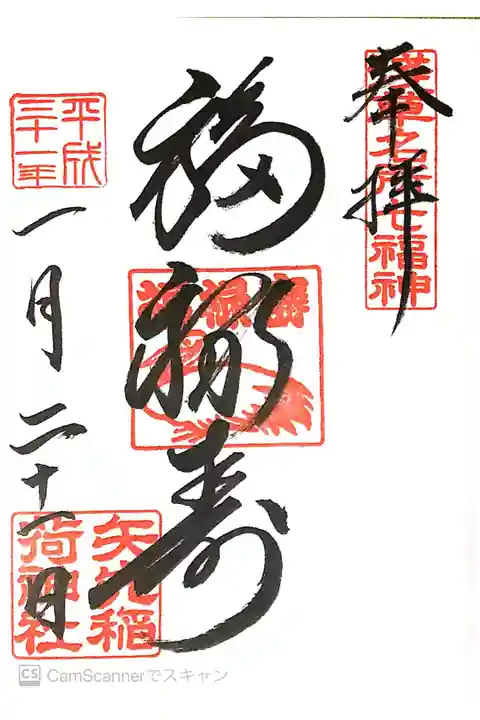 奉拝
浅草名所七福神
福禄寿
平成
三十一年
一月二十一日
矢先稲
荷神社
CS CamScannerでスキャン